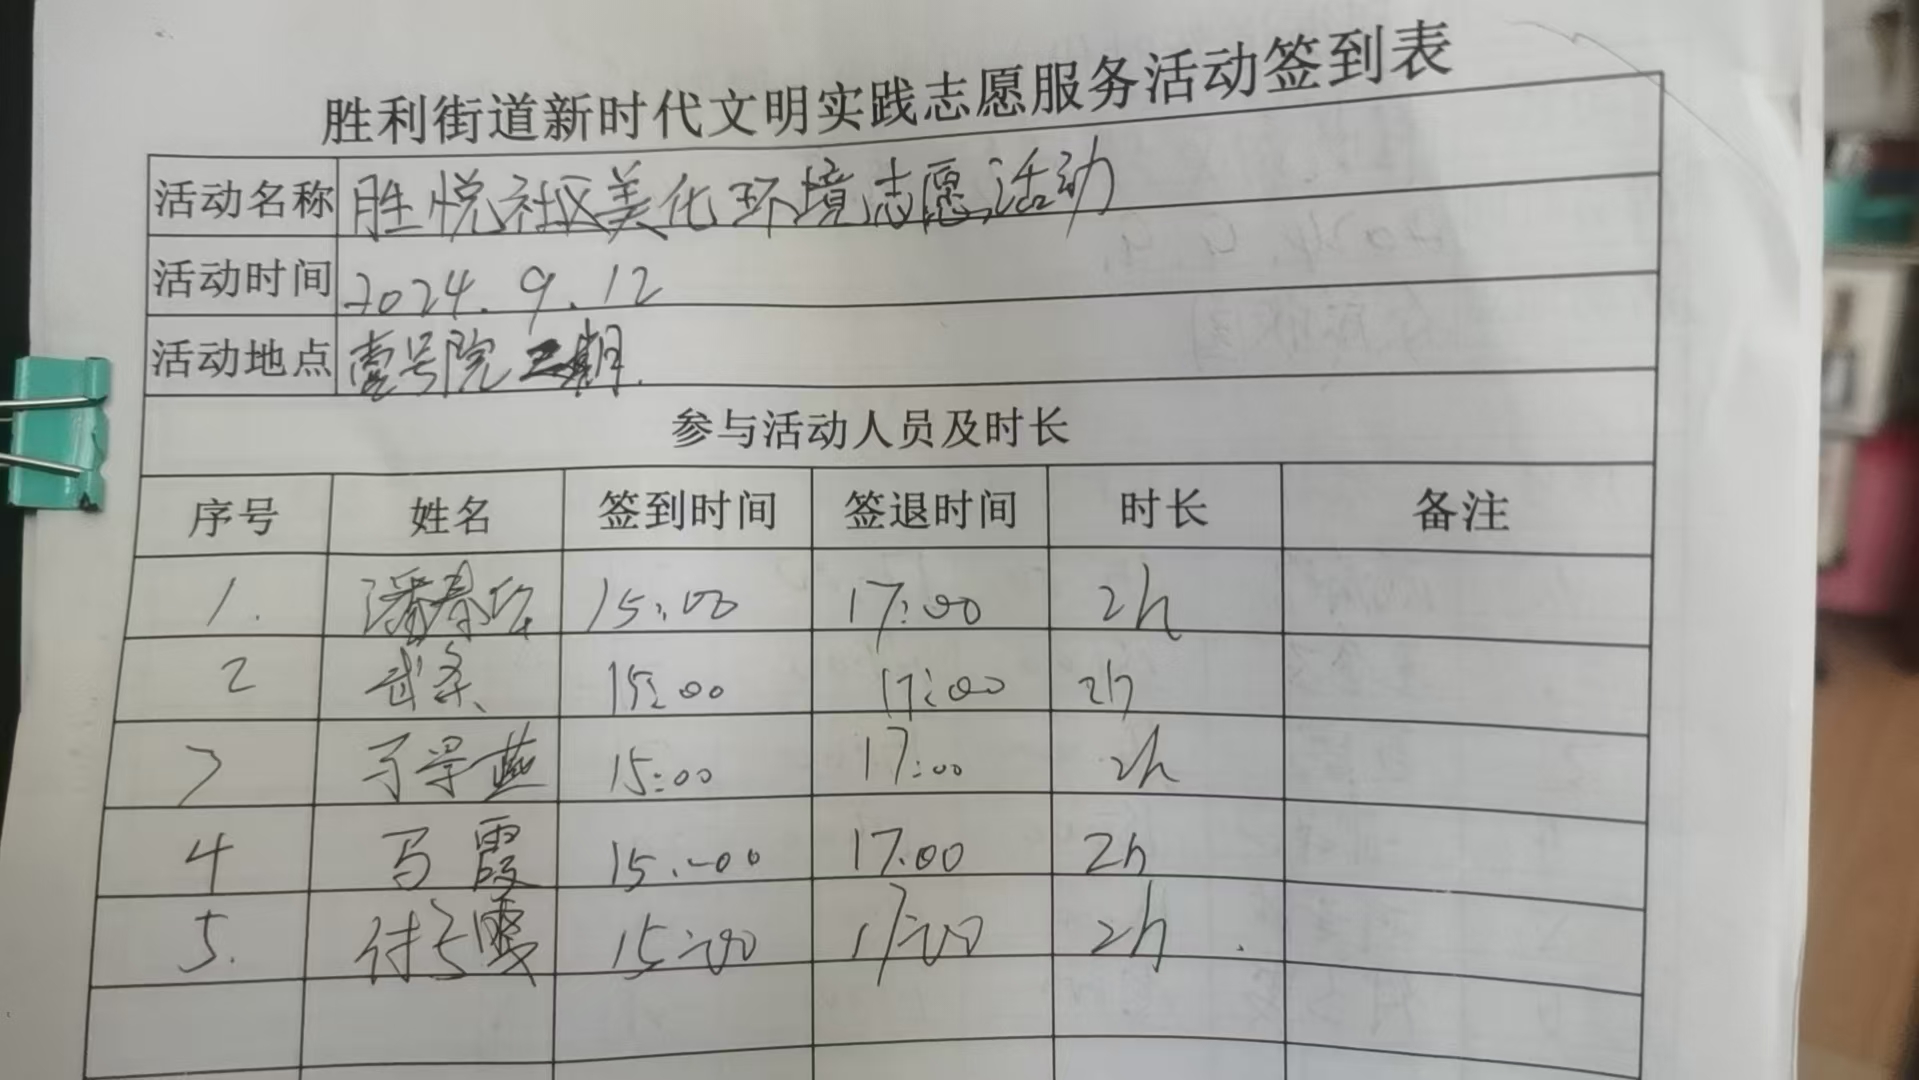 胜利街道新时代文明实践志愿服务活动签到表
活动名称 胜悦社区美化环境志愿活动
活动时间 2024.9.12
活动地点 壹号院二期.
参与活动人员及时长
序号 姓名 签到时间 签退时间 时长 备注
1. 潘春 15:00 17:00 2h
2 武 15:00 17:00 2h
3 燕 15:00 17:00 2h
4 马霞 15:00 17:00 2h
5. 付 霞 15:00 17:00 2h